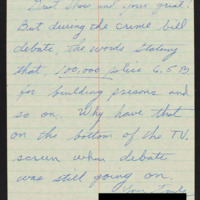 Great Show and your great.
But during the crime bill
debate, the words Stateing
that 100,000 police 6.5 B
for building prisons and
so on. Why have that
on the bottom of the T.V.
screen when debate
was still going on.